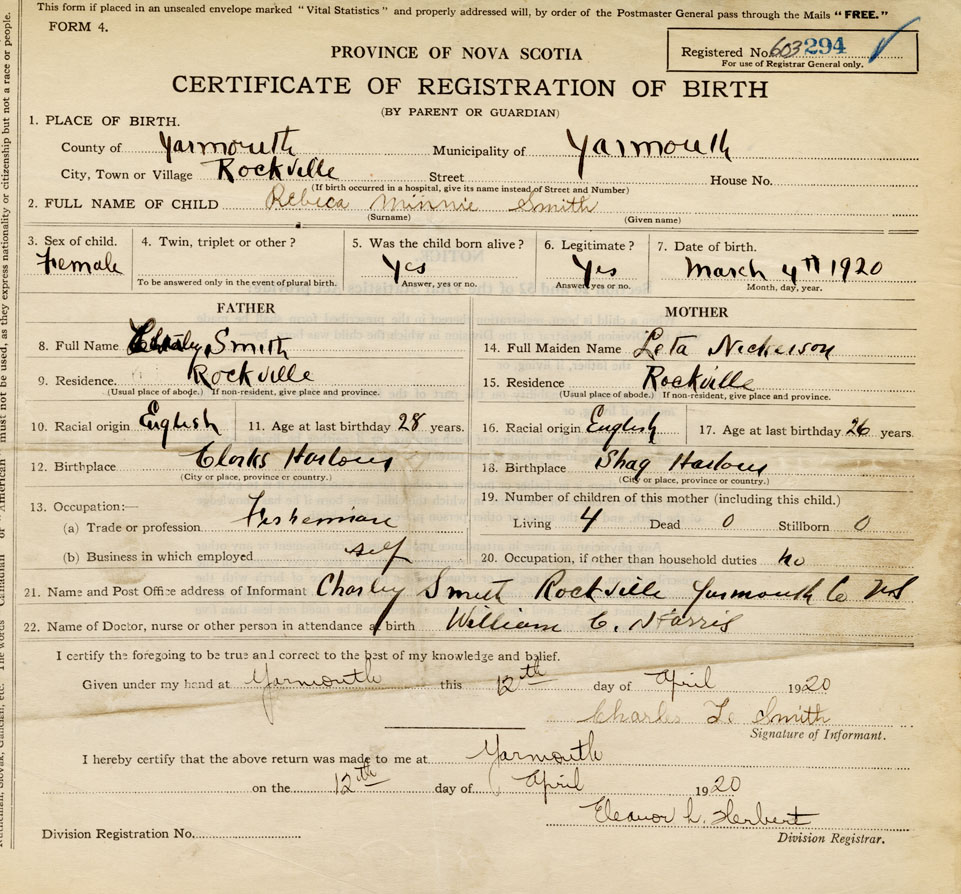 This form if placed in an unsealed envelope marked "Vital Statistics" and properly addressed will, by order of the Postmaster General pass through the Mails "FREE."
FORM 4.
PROVINCE OF NOVA SCOTIA
Registered No. 603294
For use of Registrar General only.
CERTIFICATE OF REGISTRATION OF BIRTH
(BY PARENT OR GUARDIAN)
1. PLACE OF BIRTH.
County of Yarmouth Municipality of Yarmouth
City, Town or Village Rockville Street House No.
(If birth occurred in a hospital, give its name instead of Street and Number)
2. FULL NAME OF CHILD Rebeca Minnie Smith
(Surname) (Given name)
3. Sex of child. 4. Twin, triplet or other? 5. Was the child born alive? 6. Legitimate? 7. Date of birth.
Female Yes Yes March 4th 1920
To be answered only in the event of plural birth. Answer, yes or no. Answer, yes or no. Month, day, year.
FATHER
8. Full Name Charley Smith
9. Residence. Rockville
(Usual place of abode.) If non-resident, give place and province.
10. Racial origin English 11. Age at last birthday 28 years.
12. Birthplace Clarks Harbour
(City or place, province or country.)
13. Occupation:—
(a) Trade or profession Fisherman
(b) Business in which employed self
MOTHER
14. Full Maiden Name Leta Nickerson
15. Residence Rockville
(Usual place of abode.) If non-resident, give place and province.
16. Racial origin English 17. Age at last birthday 26 years.
18. Birthplace Shag Harbour
(City or place, province or country.)
19. Number of children of this mother (including this child.)
Living 4 Dead 0 Stillborn 0
20. Occupation, if other than household duties no
21. Name and Post Office address of Informant Charley Smith Rockville Yarmouth Co NS
22. Name of Doctor, nurse or other person in attendance at birth William C. Harris
I certify the foregoing to be true and correct to the best of my knowledge and belief.
Given under my hand at Yarmouth this 12th day of April 1920
Charles L. Smith
Signature of Informant.
I hereby certify that the above return was made to me at Yarmouth
on the 12th day of April 1920
Eleanor L. Herbert
Division Registration No.
Division Registrar.